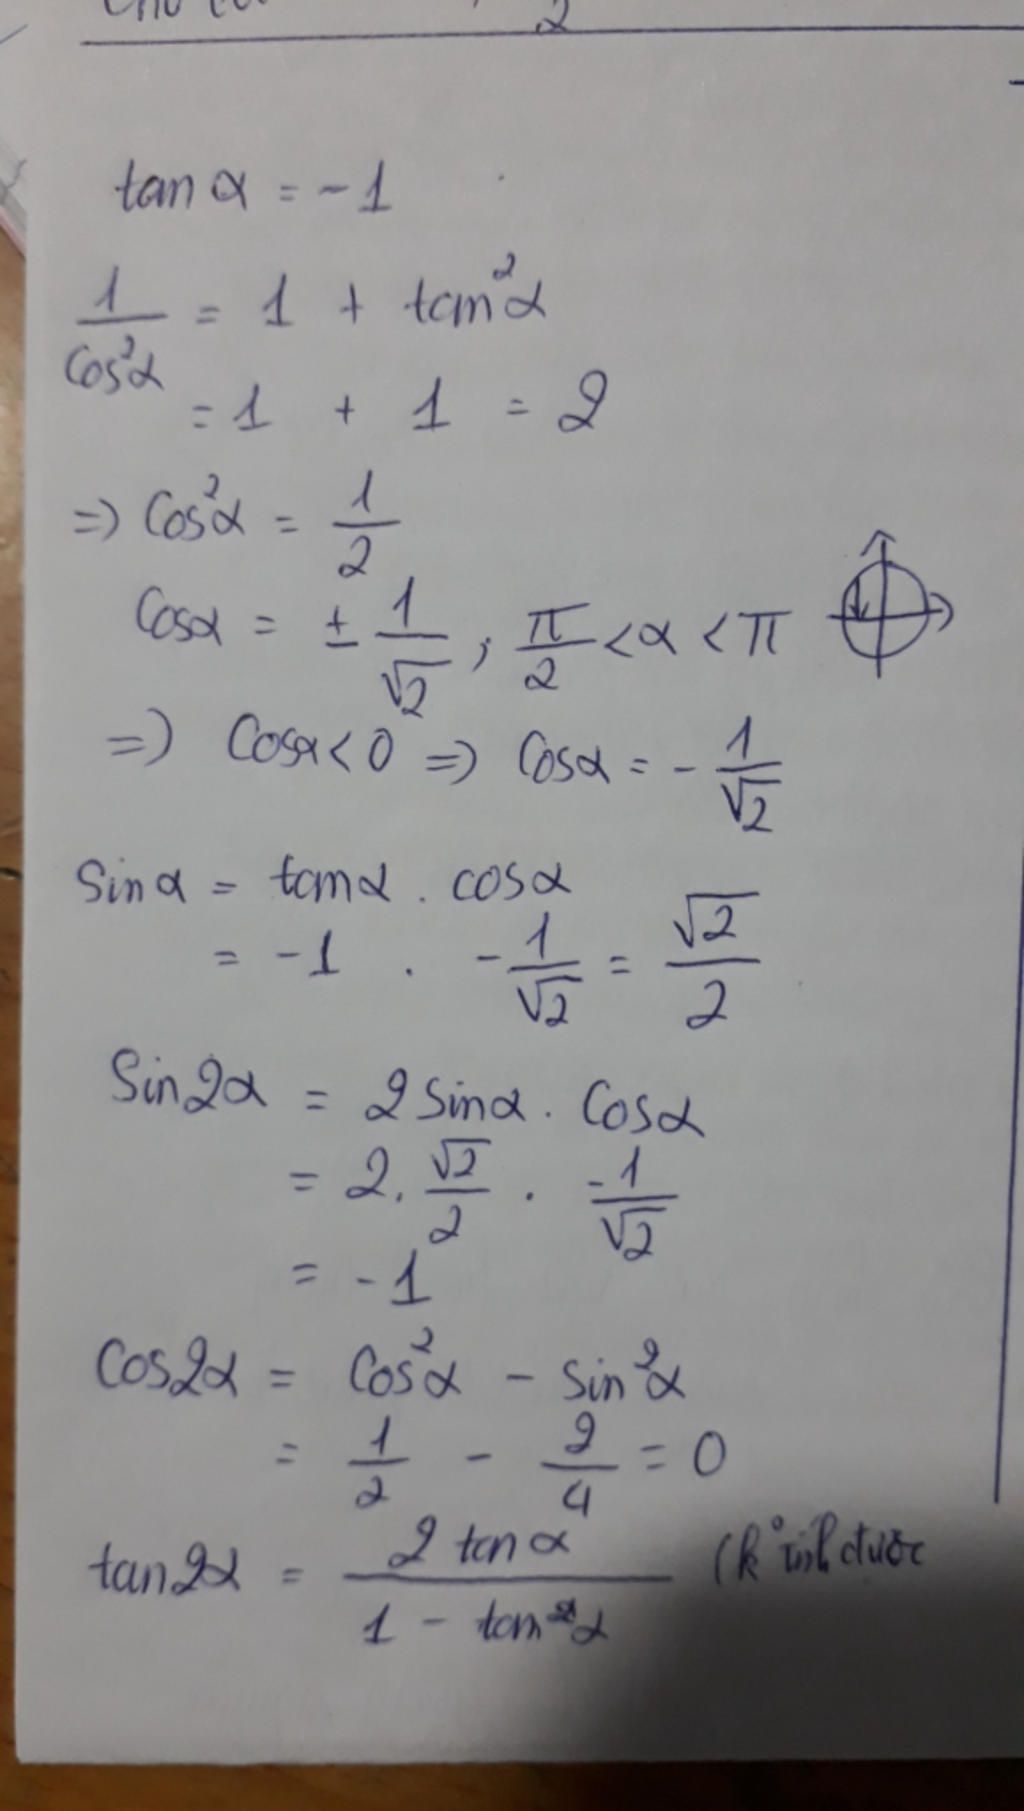 2
tan α = -1
1/cos²α = 1 + tan²α
= 1 + 1 = 2
=> cos²α = 1/2
cosα = ± 1/√2 ; π/2 < α < π
=> cosα < 0 => cosα = - 1/√2
sin α = tanα . cosα
= -1 . - 1/√2 = √2/2
sin2α = 2 sinα . cosα
= 2. √2/2 . -1/√2
= -1
cos2α = cos²α - sin²α
= 1/2 - 2/4 = 0
tan2α = 2 tan α / 1 - tan²α (k° tính được